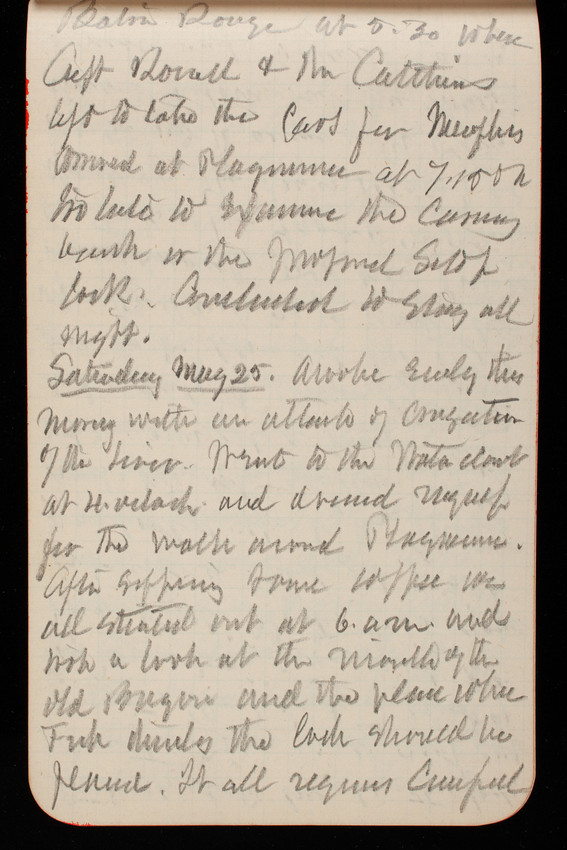 Baton Rouge at 5.30 where
Capt Rowell & Mr
left to take the Cars for Memphis
Arrived at Plaquemine at 7.15 Oh
too late to Examine the Caving
bank or the proposed Site of
lock. Concluded to Stay all
night.
Saturday May 25. Awoke Early this
morng with an attack of Congestion
of the liver. Went to the Water closet
at 4. oclock and dressed myself
for the walk around Plaquemine.
After sipping some coffee we
all started out at 6. a.m. and
took a look at the mouth of the
old Bayou and the place where
the lock should be
placed. It all requires Careful